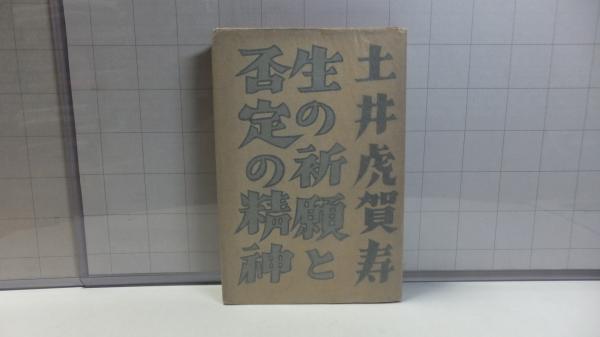 土井虎賀寿
生の祈願と
否定の精神